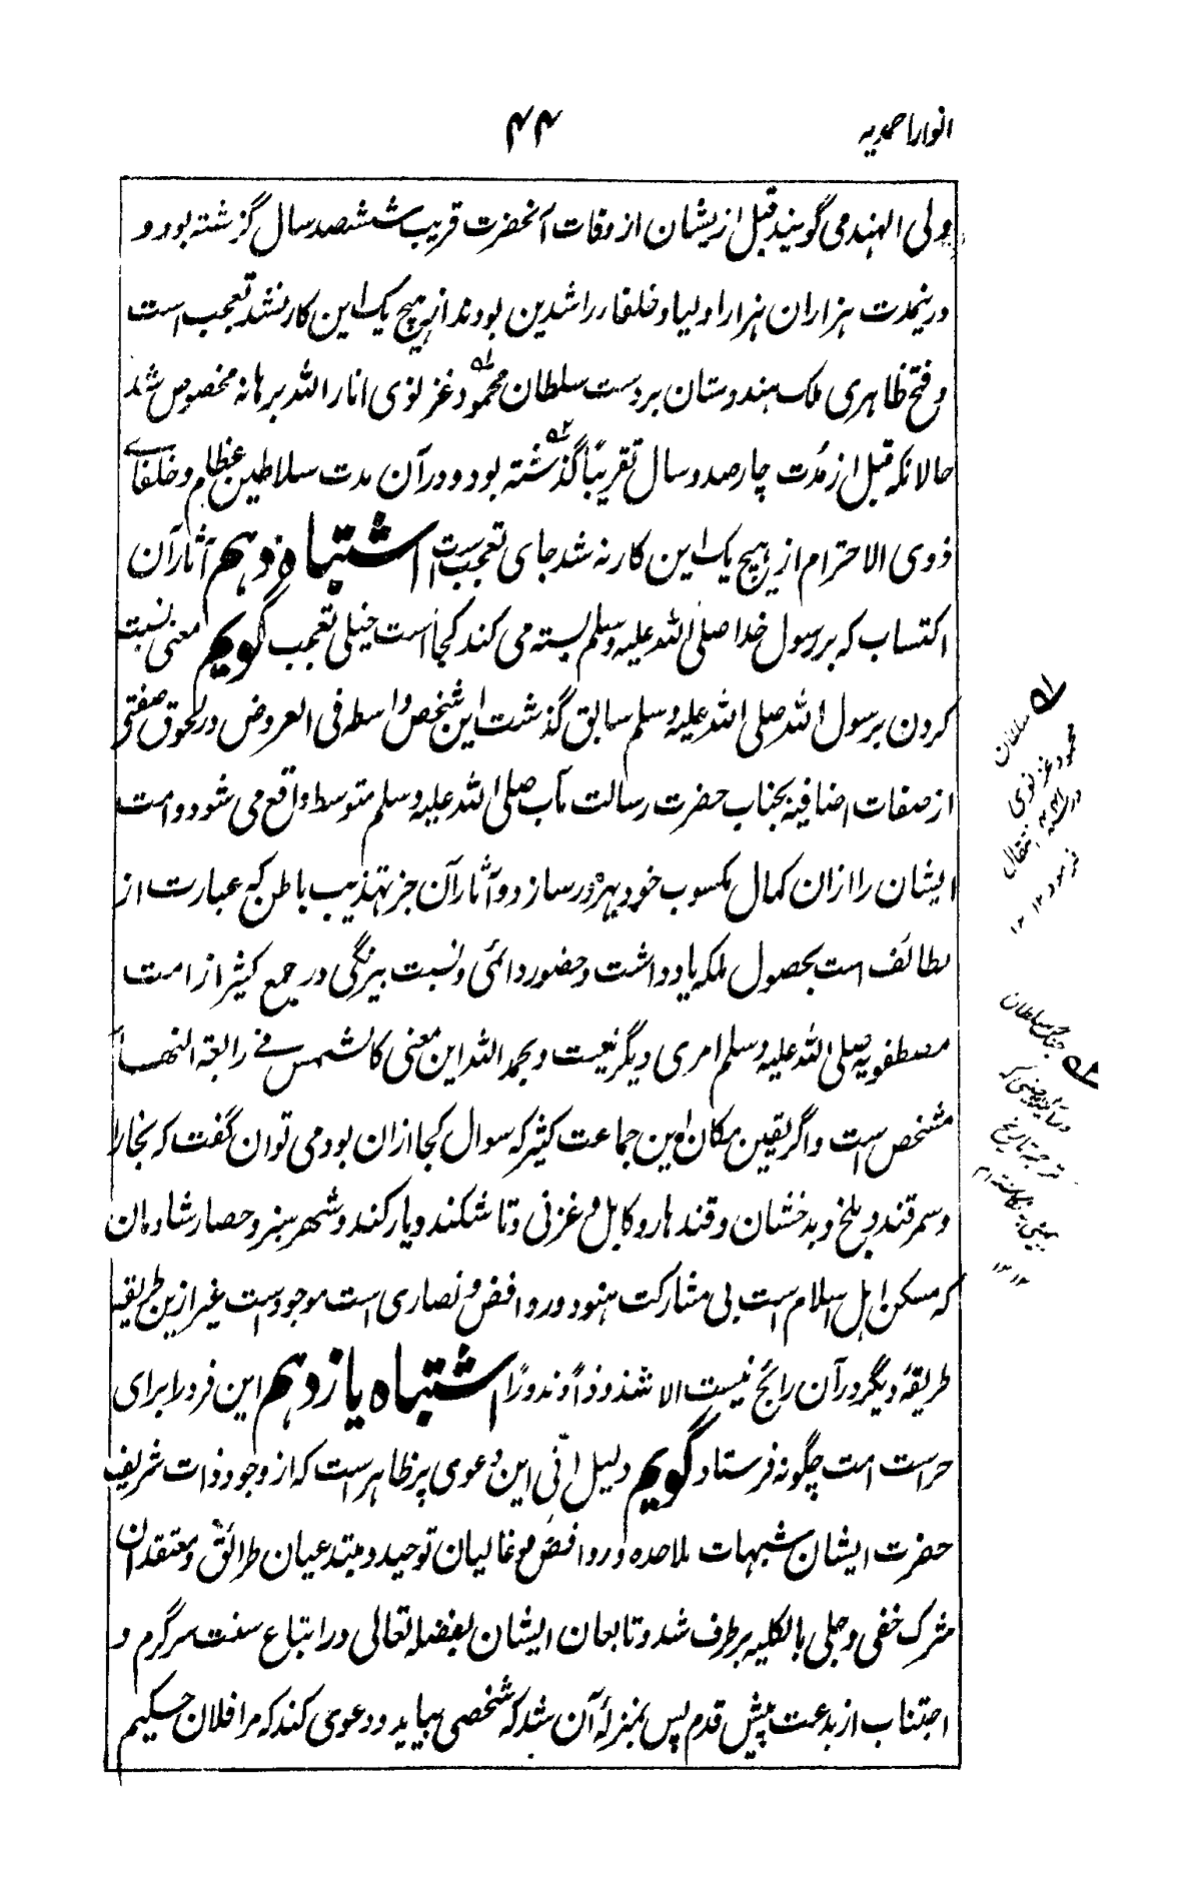 انوار احمدیہ
۴۴
ولی الہند می گویند قبل ازیشان از وفات آنحضرت قریب ششصد سال گزشتہ بود و
درینمدت ہزاران ہزار اولیا و خلفاء راشدین بودند از ہیچ یک این کار نشد تعجب است
و فتح ظاہری ملک ہندوستان بر دست سلطان محمود غزنوی انار اللہ برہانہ مخصوص شد
حالانکہ قبل از مدت چار صد و سال تقریباً گذشتہ بود و در آن مدت سلاطین عظام و خلفای
ذوی الاحترام از ہیچ یک این کار نہ شد جای تعجب است اشتباہ دہم آثار آن
اکتساب کہ بر رسول خدا صلی اللہ علیہ وسلم بستہ می کند کجا است خیلی تعجب گویم معنی نسبت
کردن بر رسول اللہ صلی اللہ علیہ وسلم سابق گذشت این شخص واسطہ فی العروض در لحوق صفتی
از صفات اضافیہ بجناب حضرت رسالت مآب صلی اللہ علیہ وسلم متوسط واقع می شود و امت
ایشان را ازان کمال مکسوب خود بہرہ ور سازد و آثار آن جز تہذیب باطن کہ عبارت از
لطائف است بحصول ملکہ یادداشت و حضور دائمی و نسبت بیرنگی در جمع کثیر از امت
مصطفویہ صلی اللہ علیہ وسلم امری دیگر نیست و بحمد اللہ این معنی کالشمس فی رابعۃ النہار
مشخص است و اگر یقین مکان این جماعت کثیر کہ سوال کجا ازان بود می توان گفت کہ بخارا
و سمرقند و بلخ و بدخشان و قندہار و کابل و غزنی و تاشکند و یارکند و شہر سبز و حصار شادمان
کہ مسکن اہل اسلام است بی مشارکت ہنود و روافض و نصاری است موجود است غیر ازین طریقہ
طریقۂ دیگر در آن رائج نیست الا شذوذاً و ندوراً اشتباہ یازدہم این فرد را برای
حراست امت چگونہ فرستاد گویم دلیل انّی این دعوی پر ظاہر است کہ از وجود ذات شریف
حضرت ایشان شبہات ملاحدہ و روافض و غالیان توحید و مبتدعیان طرائق و معتقدان
شرک خفی و جلی بالکلیہ برطرف شد و تابعان ایشان بفضلہ تعالی در اتباع سنت سرگرم و
اجتناب از بدعت پیش قدم پس بمنزلۂ آن شد کہ شخصی بیاید و دعوی کند کہ مرا فلان حکیم
سلطان
محمود غزنوی
انتقال
فرمود ۱۲
جنگ سلطان
ترجمہ تاریخ
۱۲